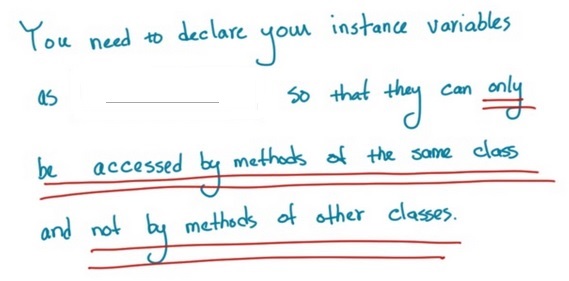 You need to declare your instance variables
as __________ so that they can only
be accessed by methods of the same class
and not by methods of other classes.